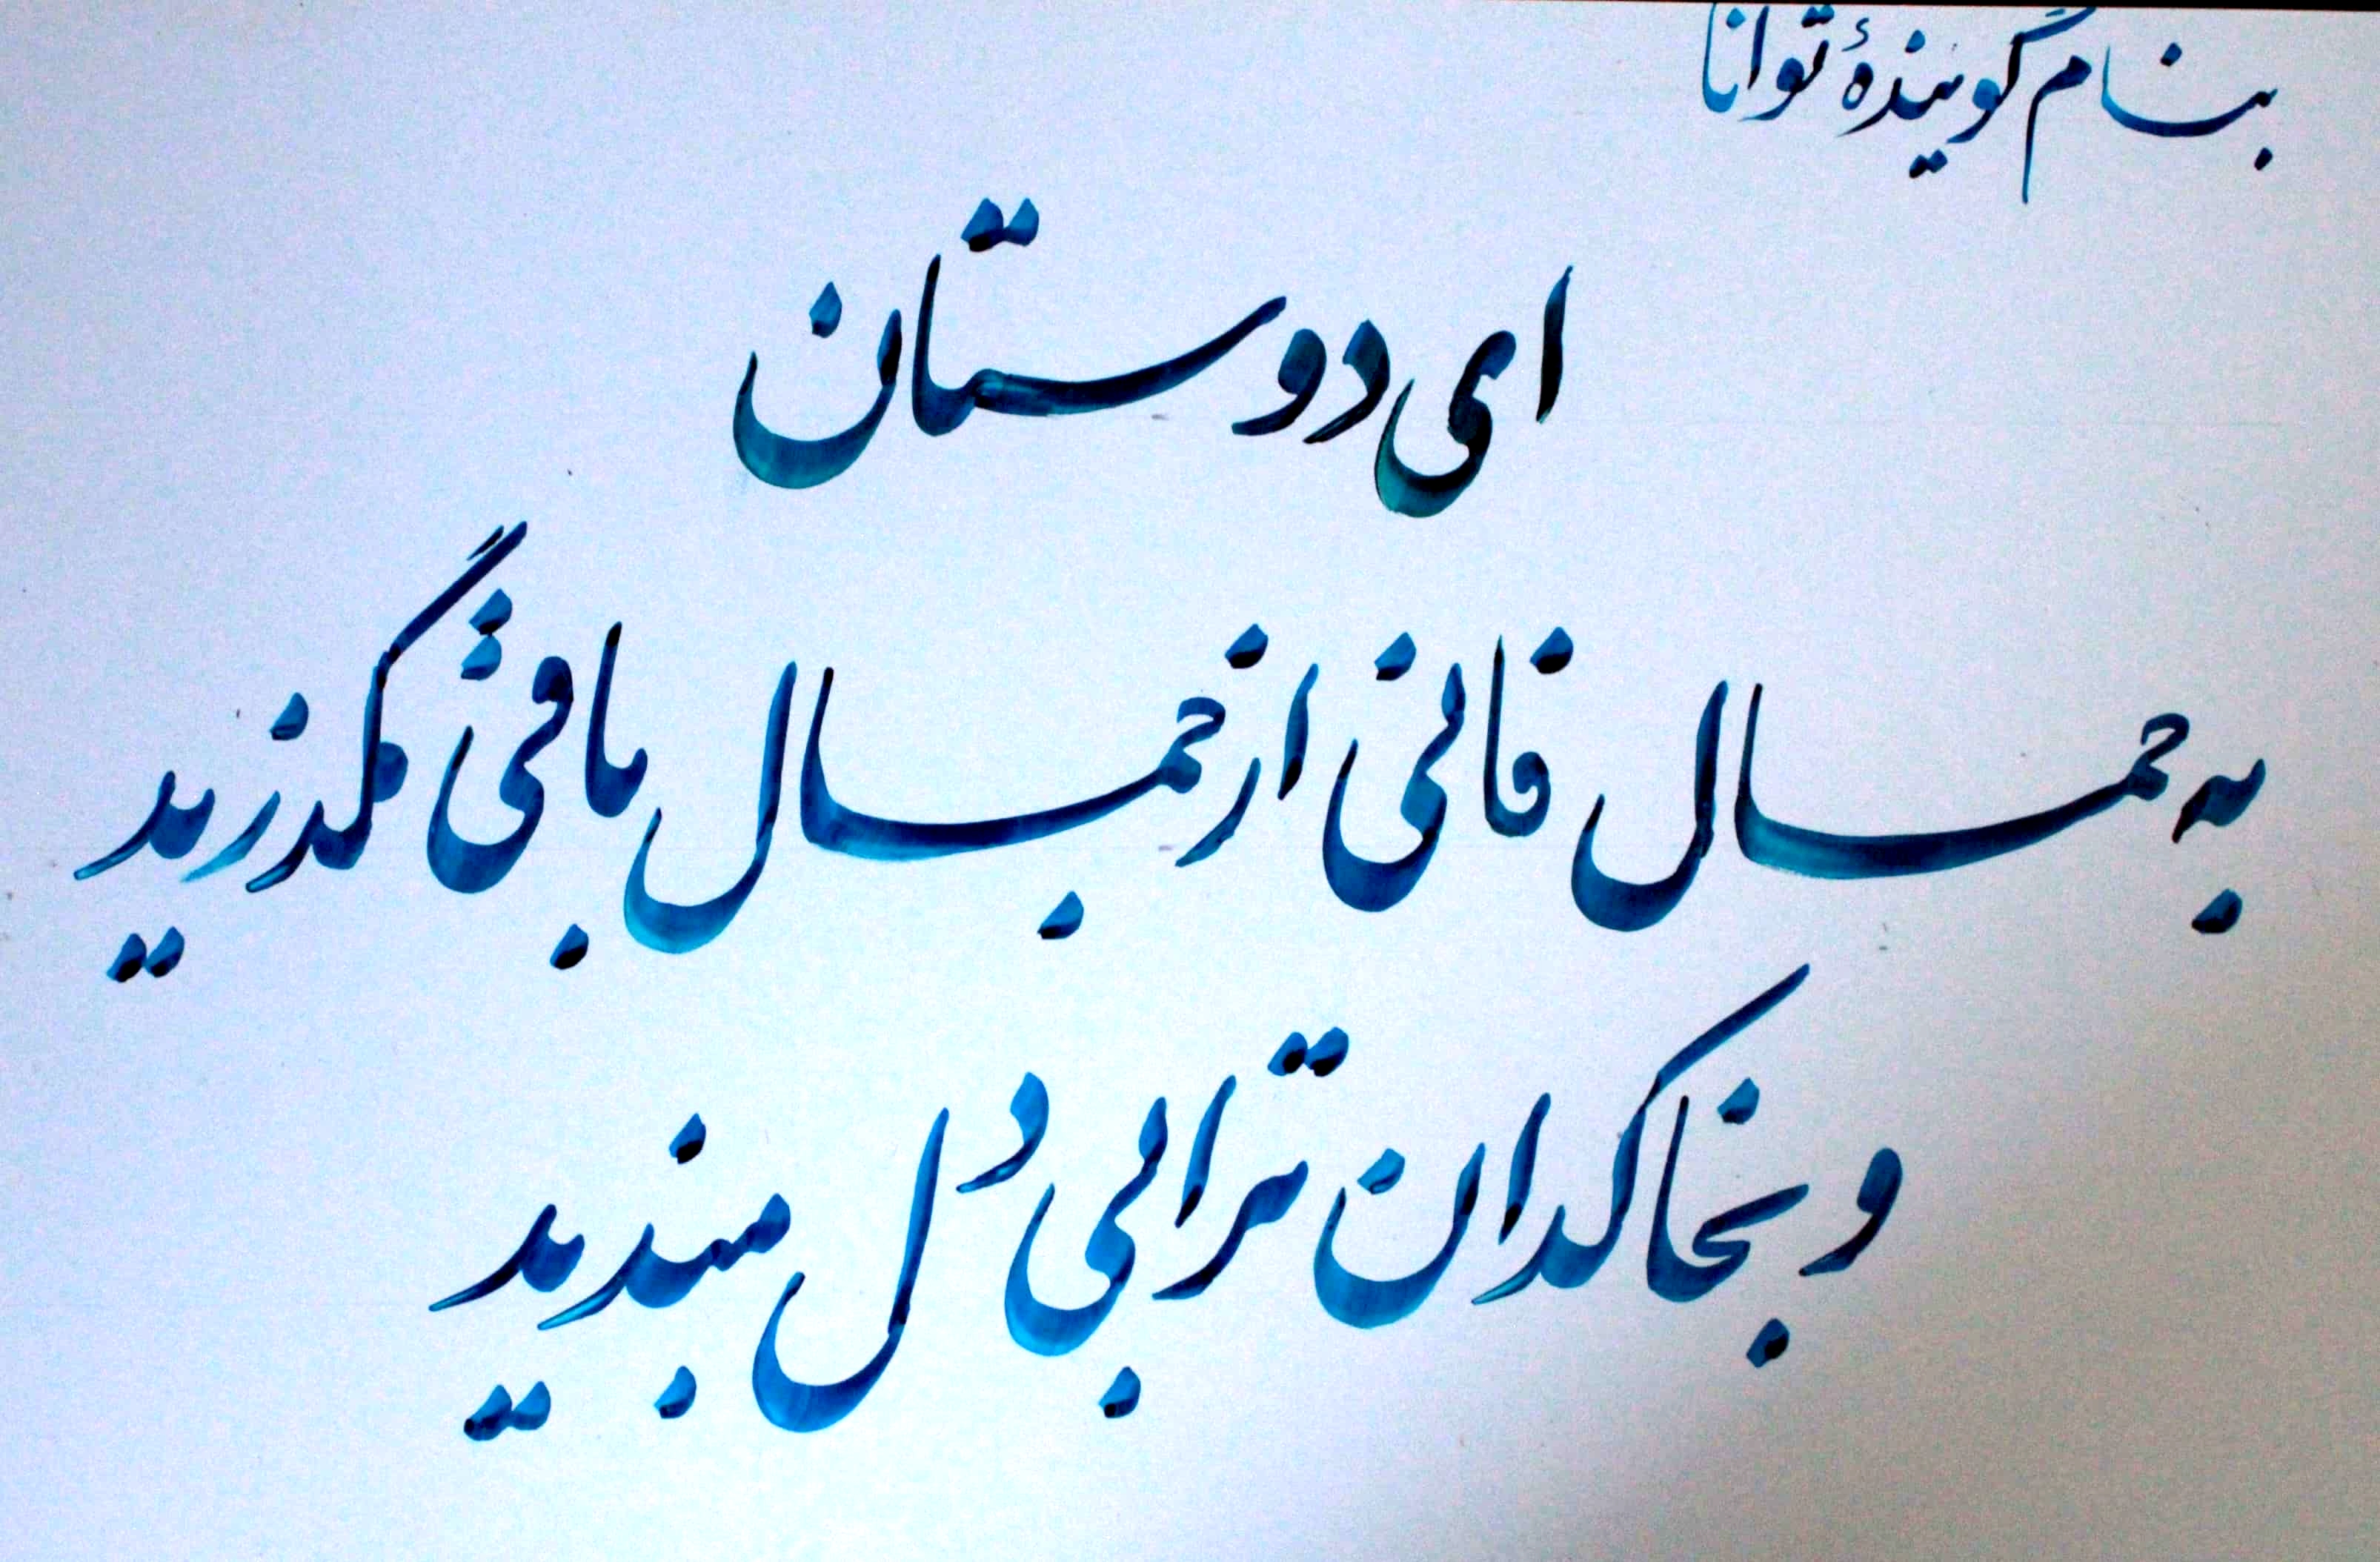 بنام گویندهٔ توانا
ای دوستان
به جمال فانی از جمال باقی مگذرید
و بخاکدان ترابی دل مبندید